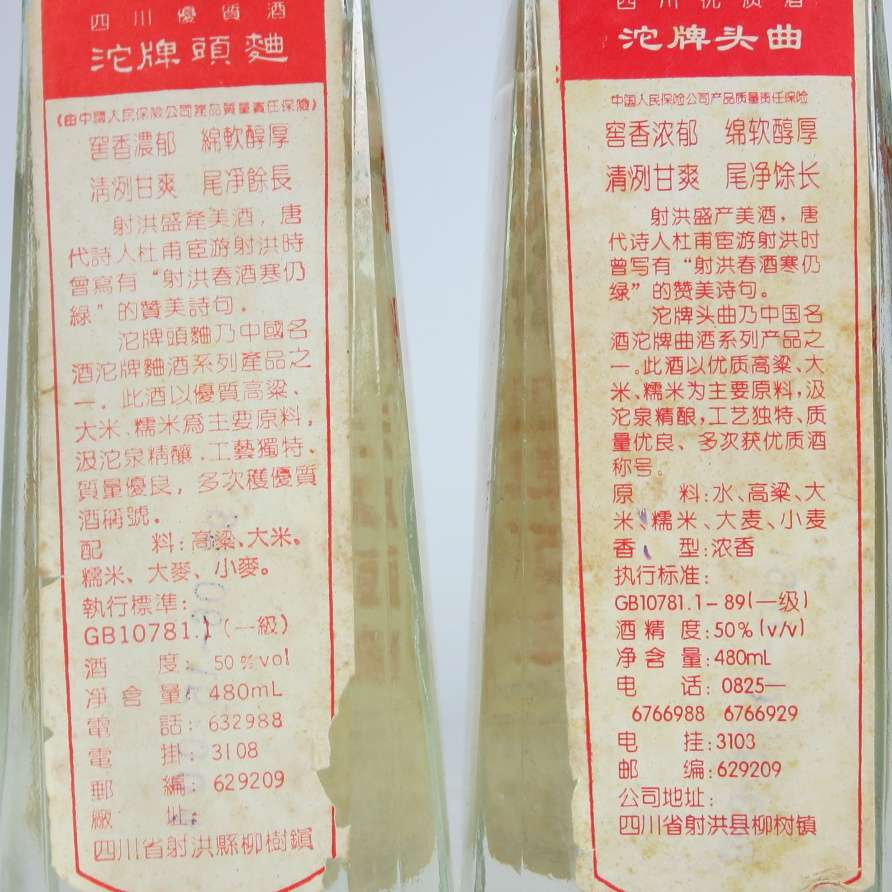 四川優質酒
沱牌頭麯
(由中國人民保險公司產品質量責任保險)
窖香濃郁 綿軟醇厚
清冽甘爽 尾凈餘長
射洪盛產美酒，唐
代詩人杜甫宦游射洪時
曾寫有“射洪春酒寒仍
綠”的贊美詩句.
沱牌頭麯乃中國名
酒沱牌麯酒系列產品之
一.此酒以優質高粱、
大米、糯米爲主要原料,
汲沱泉精釀.工藝獨特、
質量優良,多次穫優質
酒稱號。
配 料:高粱、大米。
糯米、大麥、小麥。
執行標準:
GB10781.1(一級)
酒 度: 50%vol
凈含量: 480mL
電 話: 632988
電 掛: 3108
郵 編: 629209
廠 址:
四川省射洪縣柳樹鎮
四川优质酒
沱牌头曲
中国人民保险公司产品质量责任保险
窖香浓郁 绵软醇厚
清冽甘爽 尾净馀长
射洪盛产美酒，唐
代诗人杜甫宦游射洪时
曾写有“射洪春酒寒仍
绿”的赞美诗句。
沱牌头曲乃中国名
酒沱牌曲酒系列产品之
一。此酒以优质高粱、大
米、糯米为主要原料,汲
沱泉精酿,工艺独特、质
量优良、多次获优质酒
称号。
原 料:水、高粱、大
米、糯米、大麦、小麦
香 型:浓香
执行标准:
GB10781.1-89(一级)
酒精度:50%(v/v)
净含量:480mL
电 话: 0825—
6766988 6766929
电 挂:3103
邮 编:629209
公司地址:
四川省射洪县柳树镇